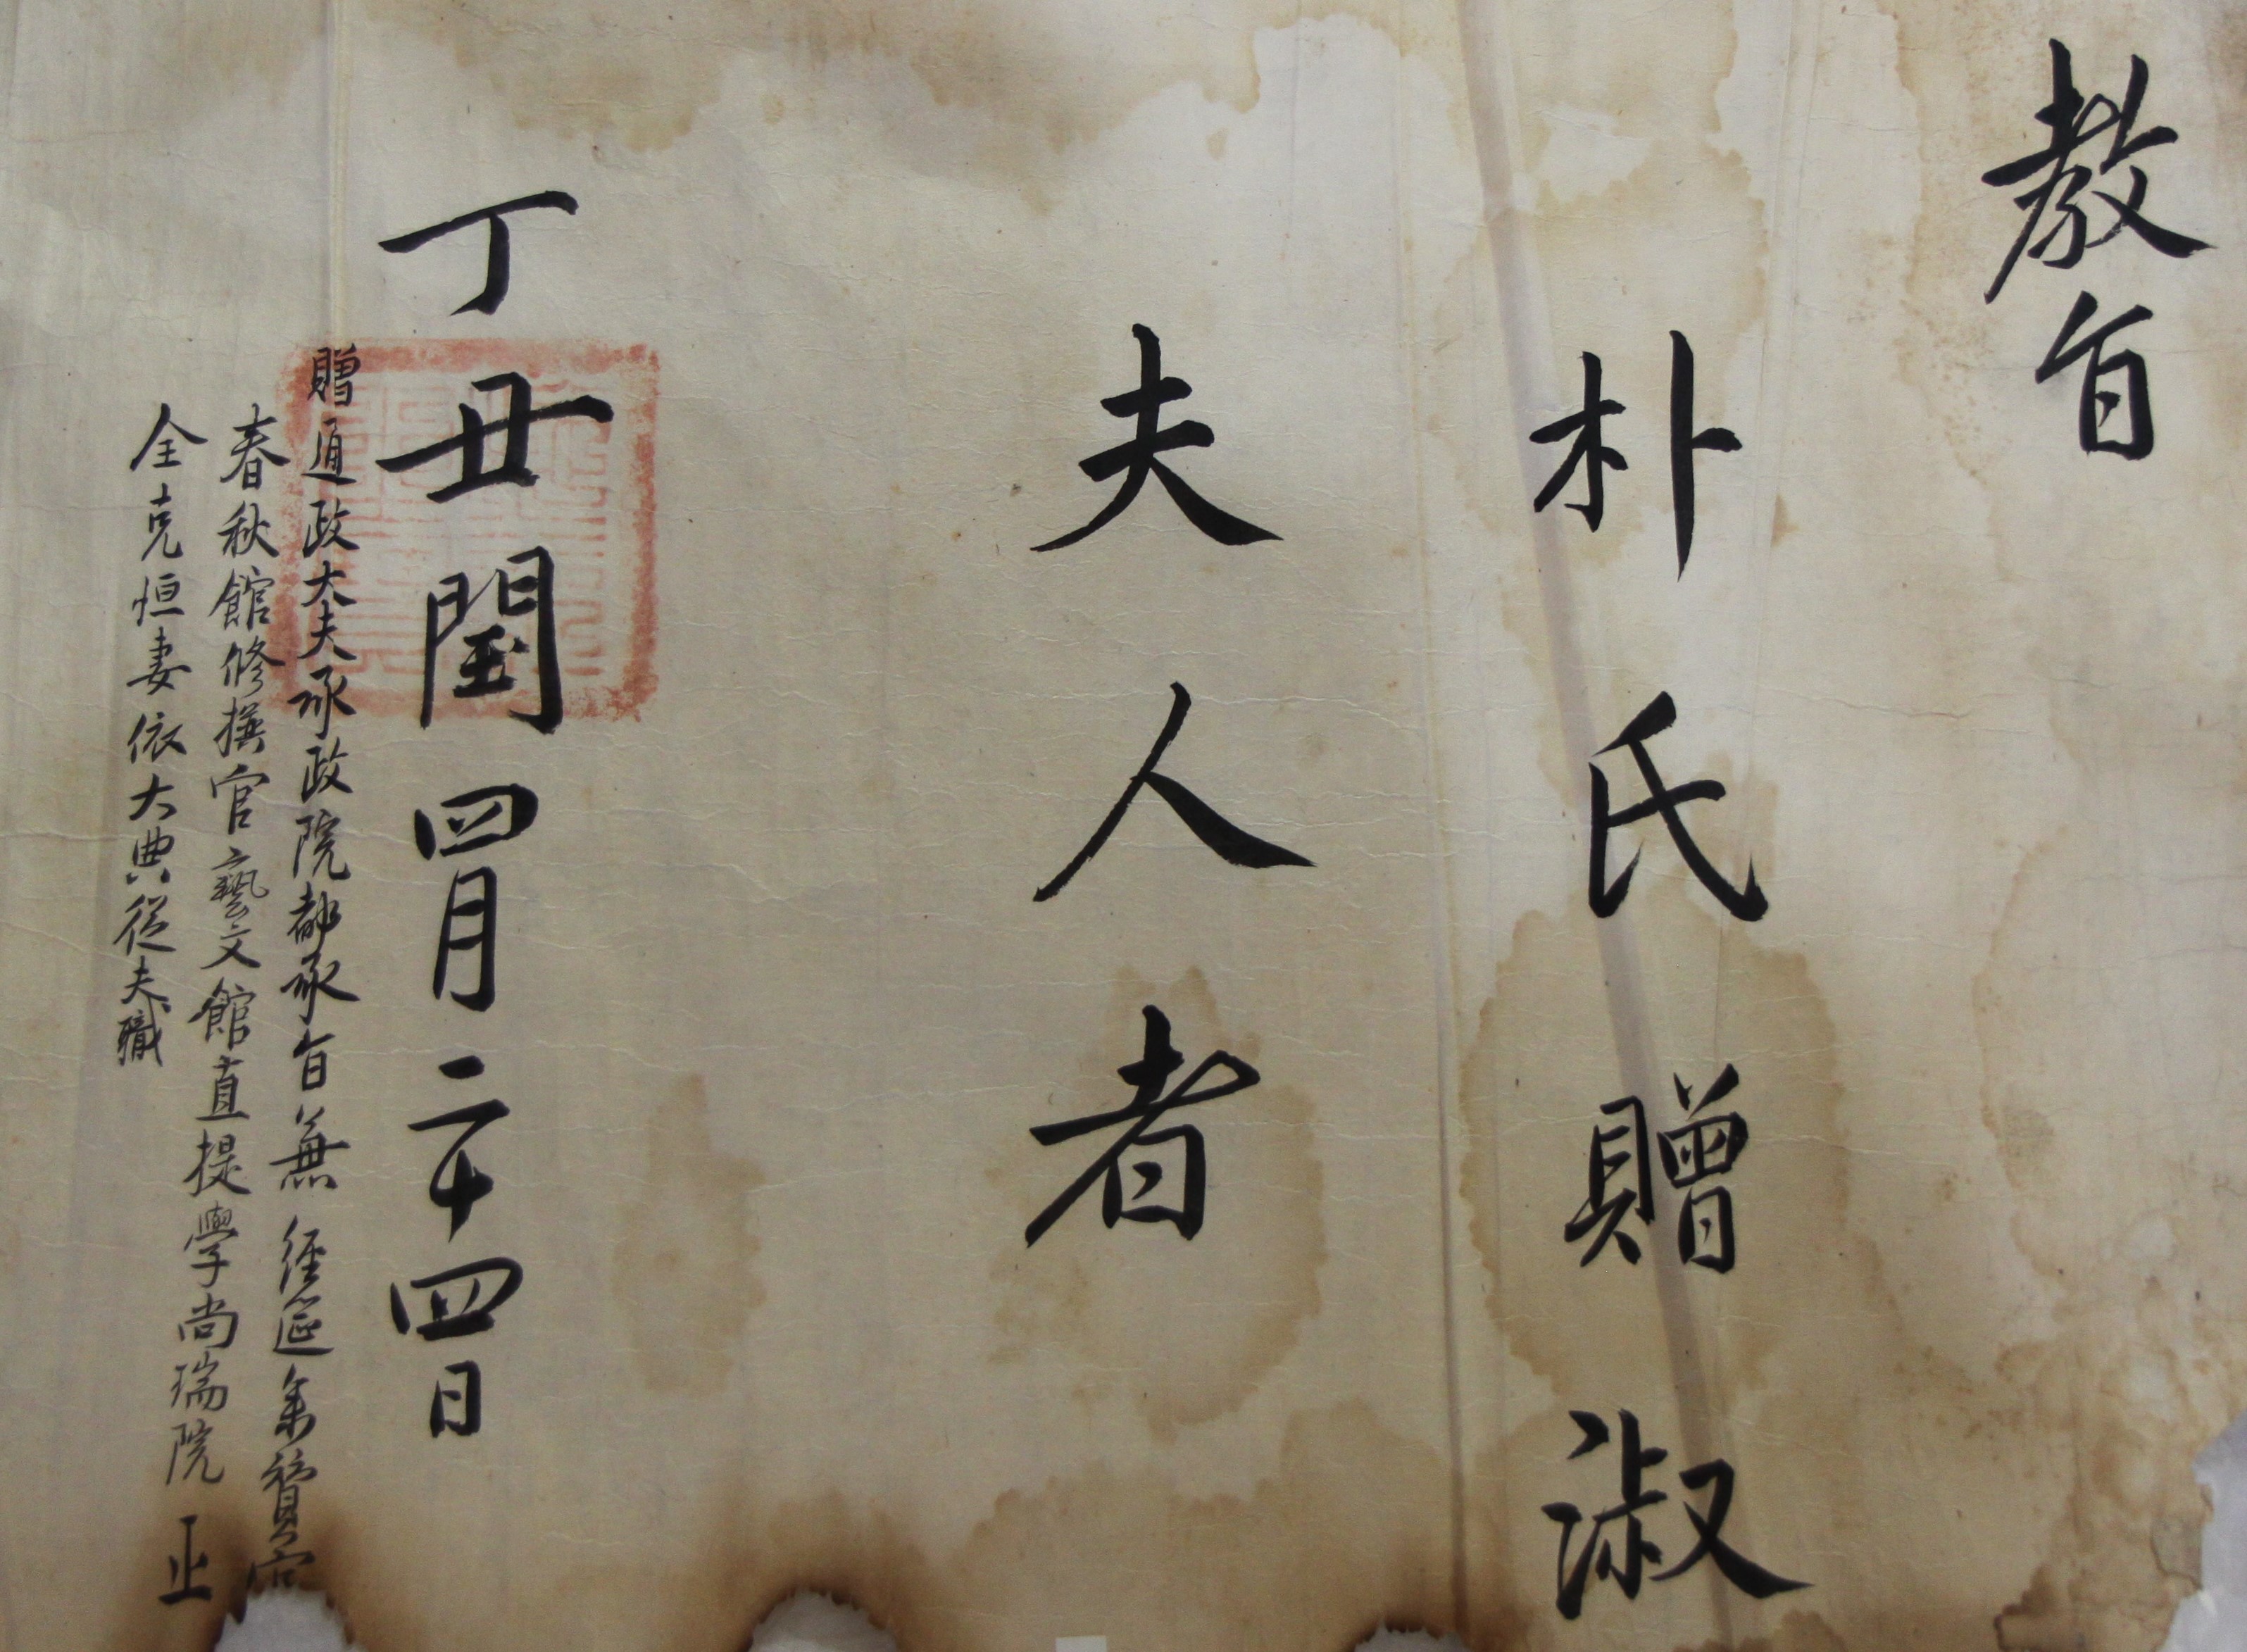 教旨
朴氏贈淑
夫人者
丁丑閏四月二十四日
贈通政大夫承政院都承旨兼經筵參贊官
春秋館修撰官藝文館直提學尚瑞院正
全克恒妻依大典從夫職